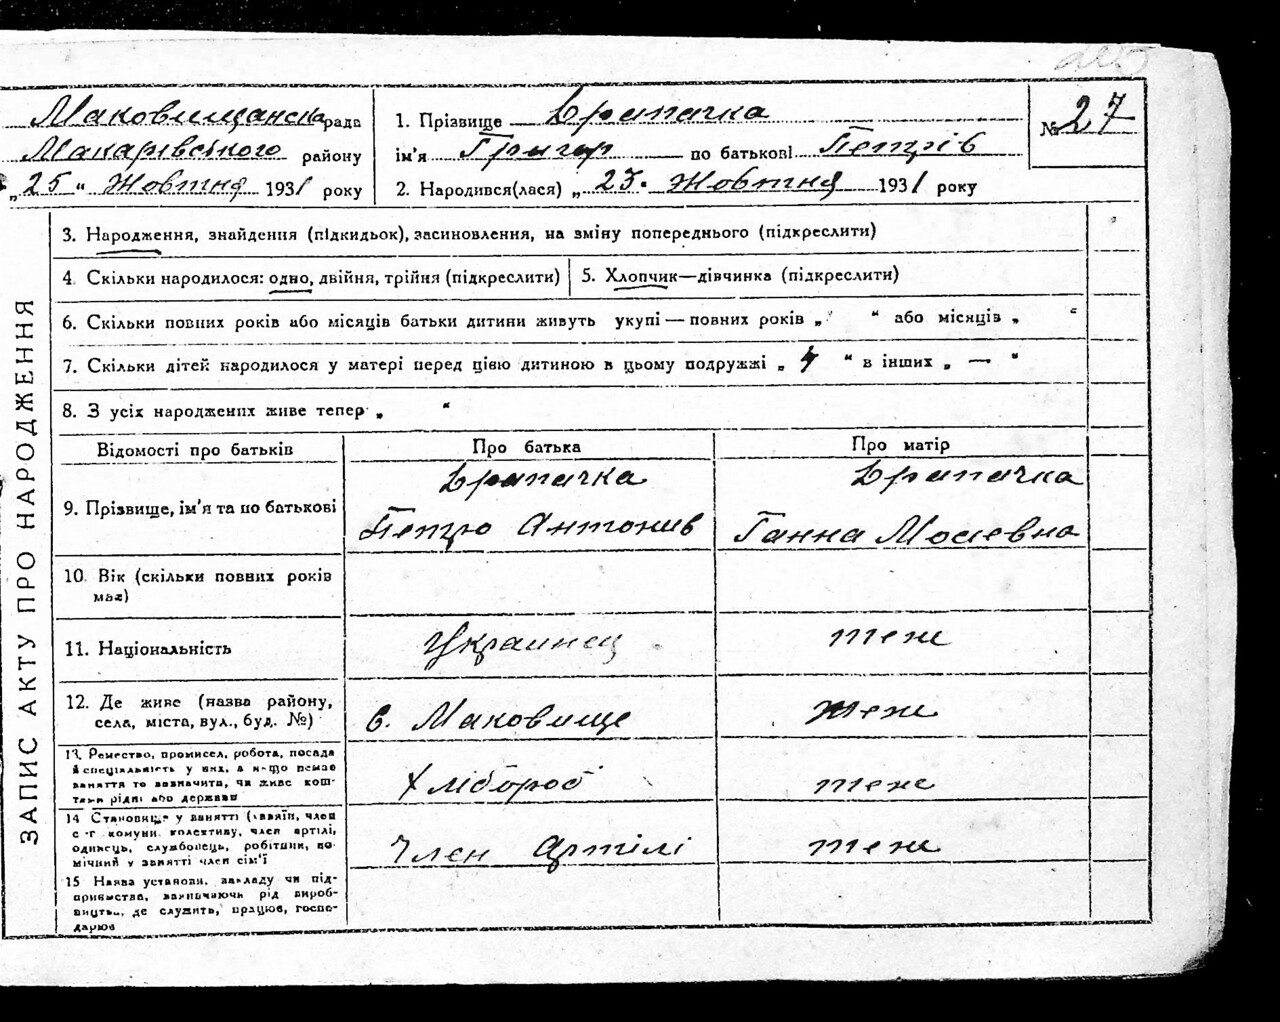 Маковищанська рада
Макарівського району
„25“ Жовтня 1931 року
1. Прізвище
ім'я Григор по батькові Петрів
2. Народився(лася) „23. Жовтня 1931 року
№ 27
ЗАПИС АКТУ ПРО НАРОДЖЕННЯ
3. Народження, знайдення (підкидьок), засиновлення, на зміну попереднього (підкреслити)
4. Скільки народилося: одно, двійня, трійня (підкреслити)
5. Хлопчик—дівчинка (підкреслити)
6. Скільки повних років або місяців батьки дитини живуть укупі — повних років „ “ або місяців „ “
7. Скільки дітей народилося у матері перед цією дитиною в цьому подружжі „ 4 “ в інших „ — “
8. З усіх народжених живе тепер „ “
Відомості про батьків
Про батька
Про матір
9. Прізвище, ім'я та по батькові
Петро Антонив
Ганна Мосиевна
10. Вік (скільки повних років
має)
11. Національність
Украинец
теж
12. Де живе (назва району,
села, міста, вул., буд. №)
с. Маковище
теж
13. Ремество, промисел, робота, посада
й спеціяльність у них, а якщо немає
заняття то зазначити, чи живе кош-
тами рідні або держави
Хлібороб
теж
14 Становище у занятті (хазяїн, член
с-г комуни, колективу, член артілі,
одинець, службовець, робітник, по-
мічний у занятті член сім'ї
Член Артілі
теж
15 Назва установи, закладу чи під-
приємства, зазначаючи рід вироб-
ництва, де служить, працює, госпо-
дарює